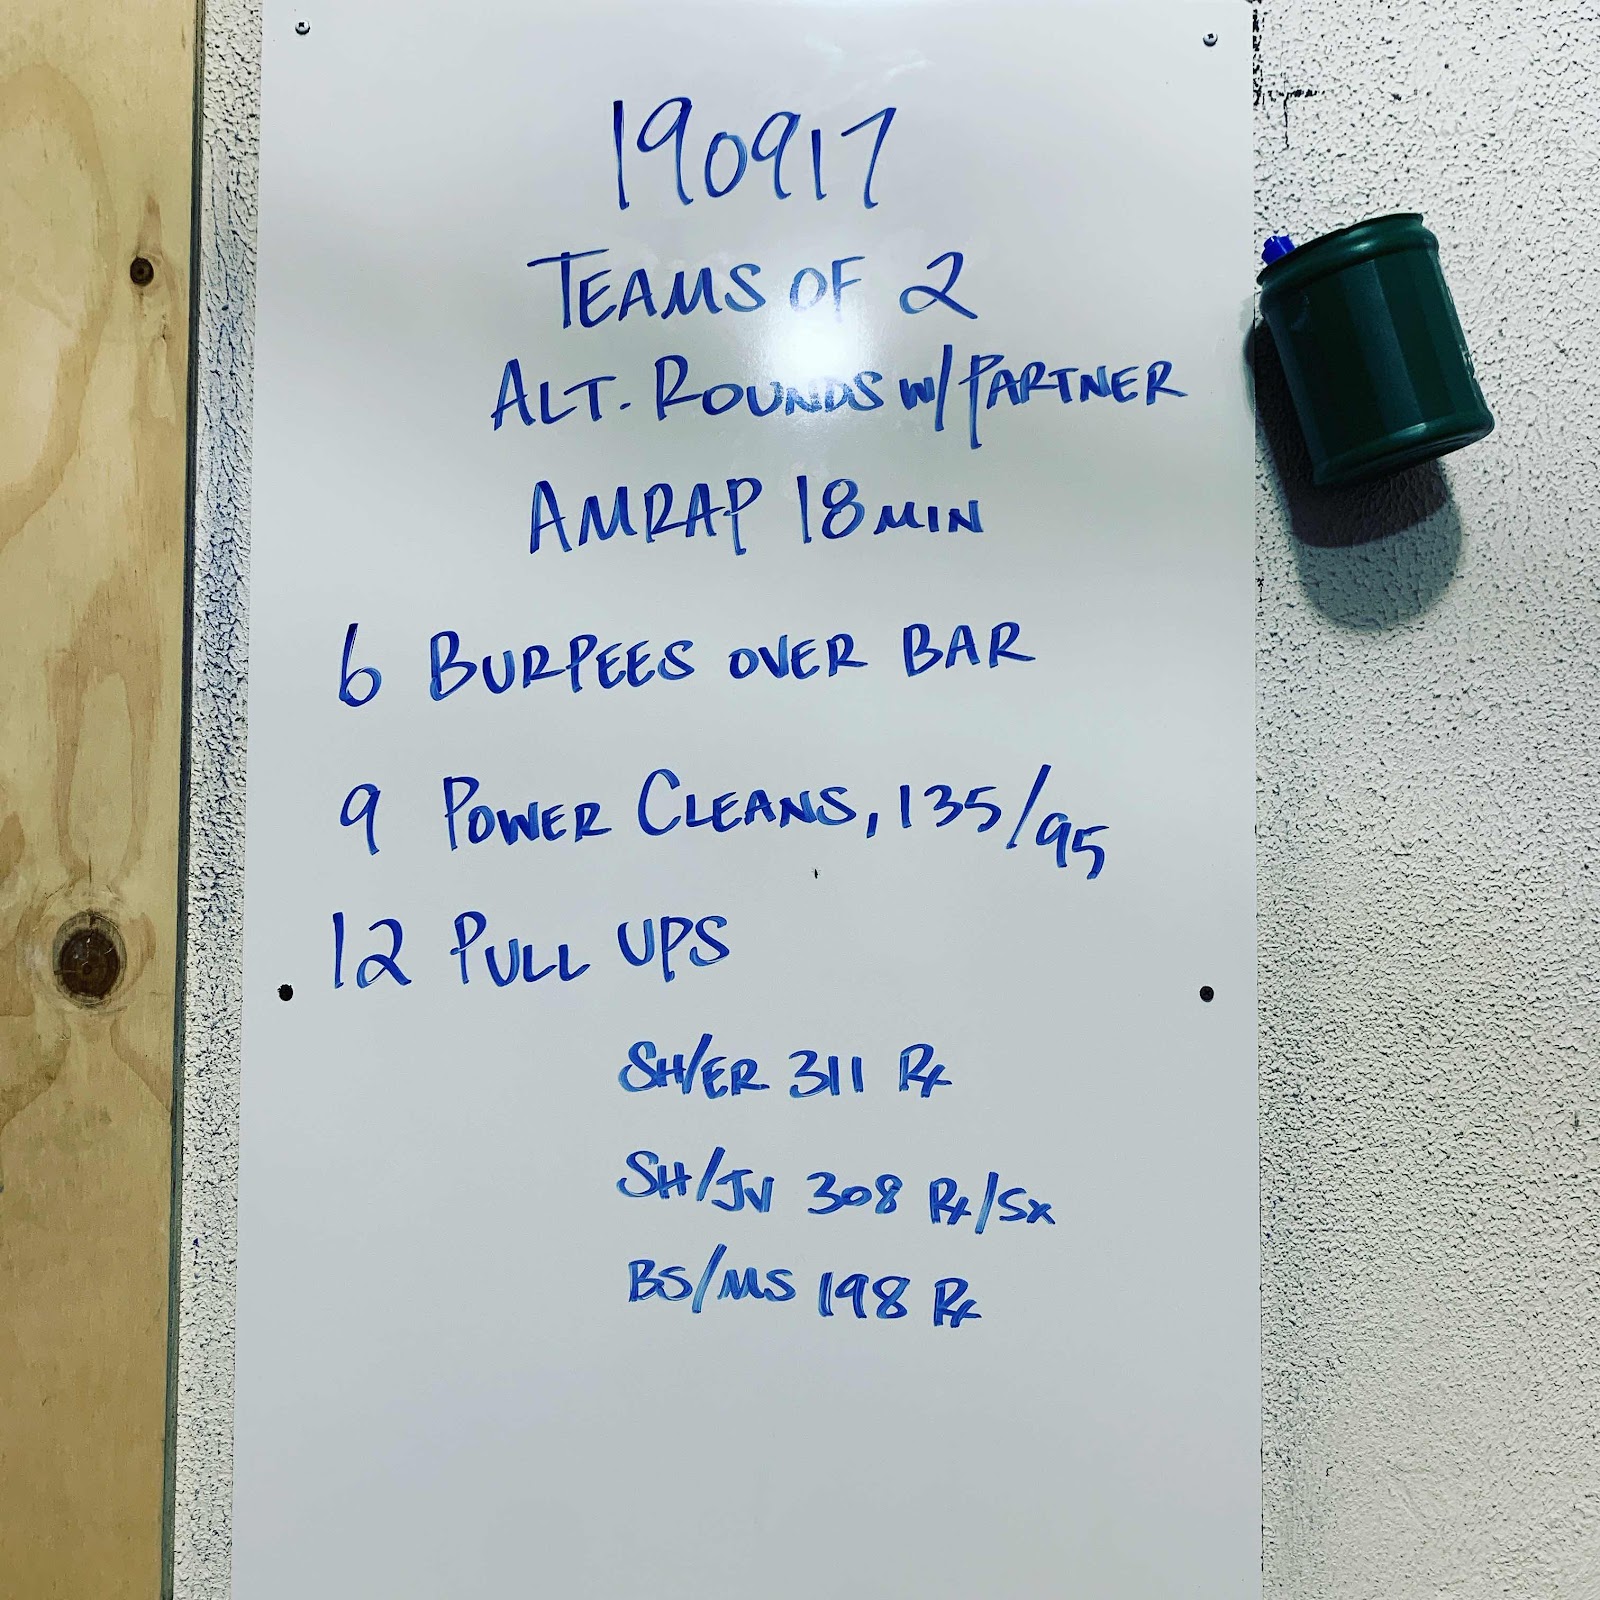 190917
TEAMS OF 2
ALT. ROUNDS W/PARTNER
AMRAP 18 MIN
6 BURPEES OVER BAR
9 POWER CLEANS, 135/95
12 PULL UPS
SH/ER 311 Rx
SH/JV 308 Rx/Sx
BS/MS 198 Rx